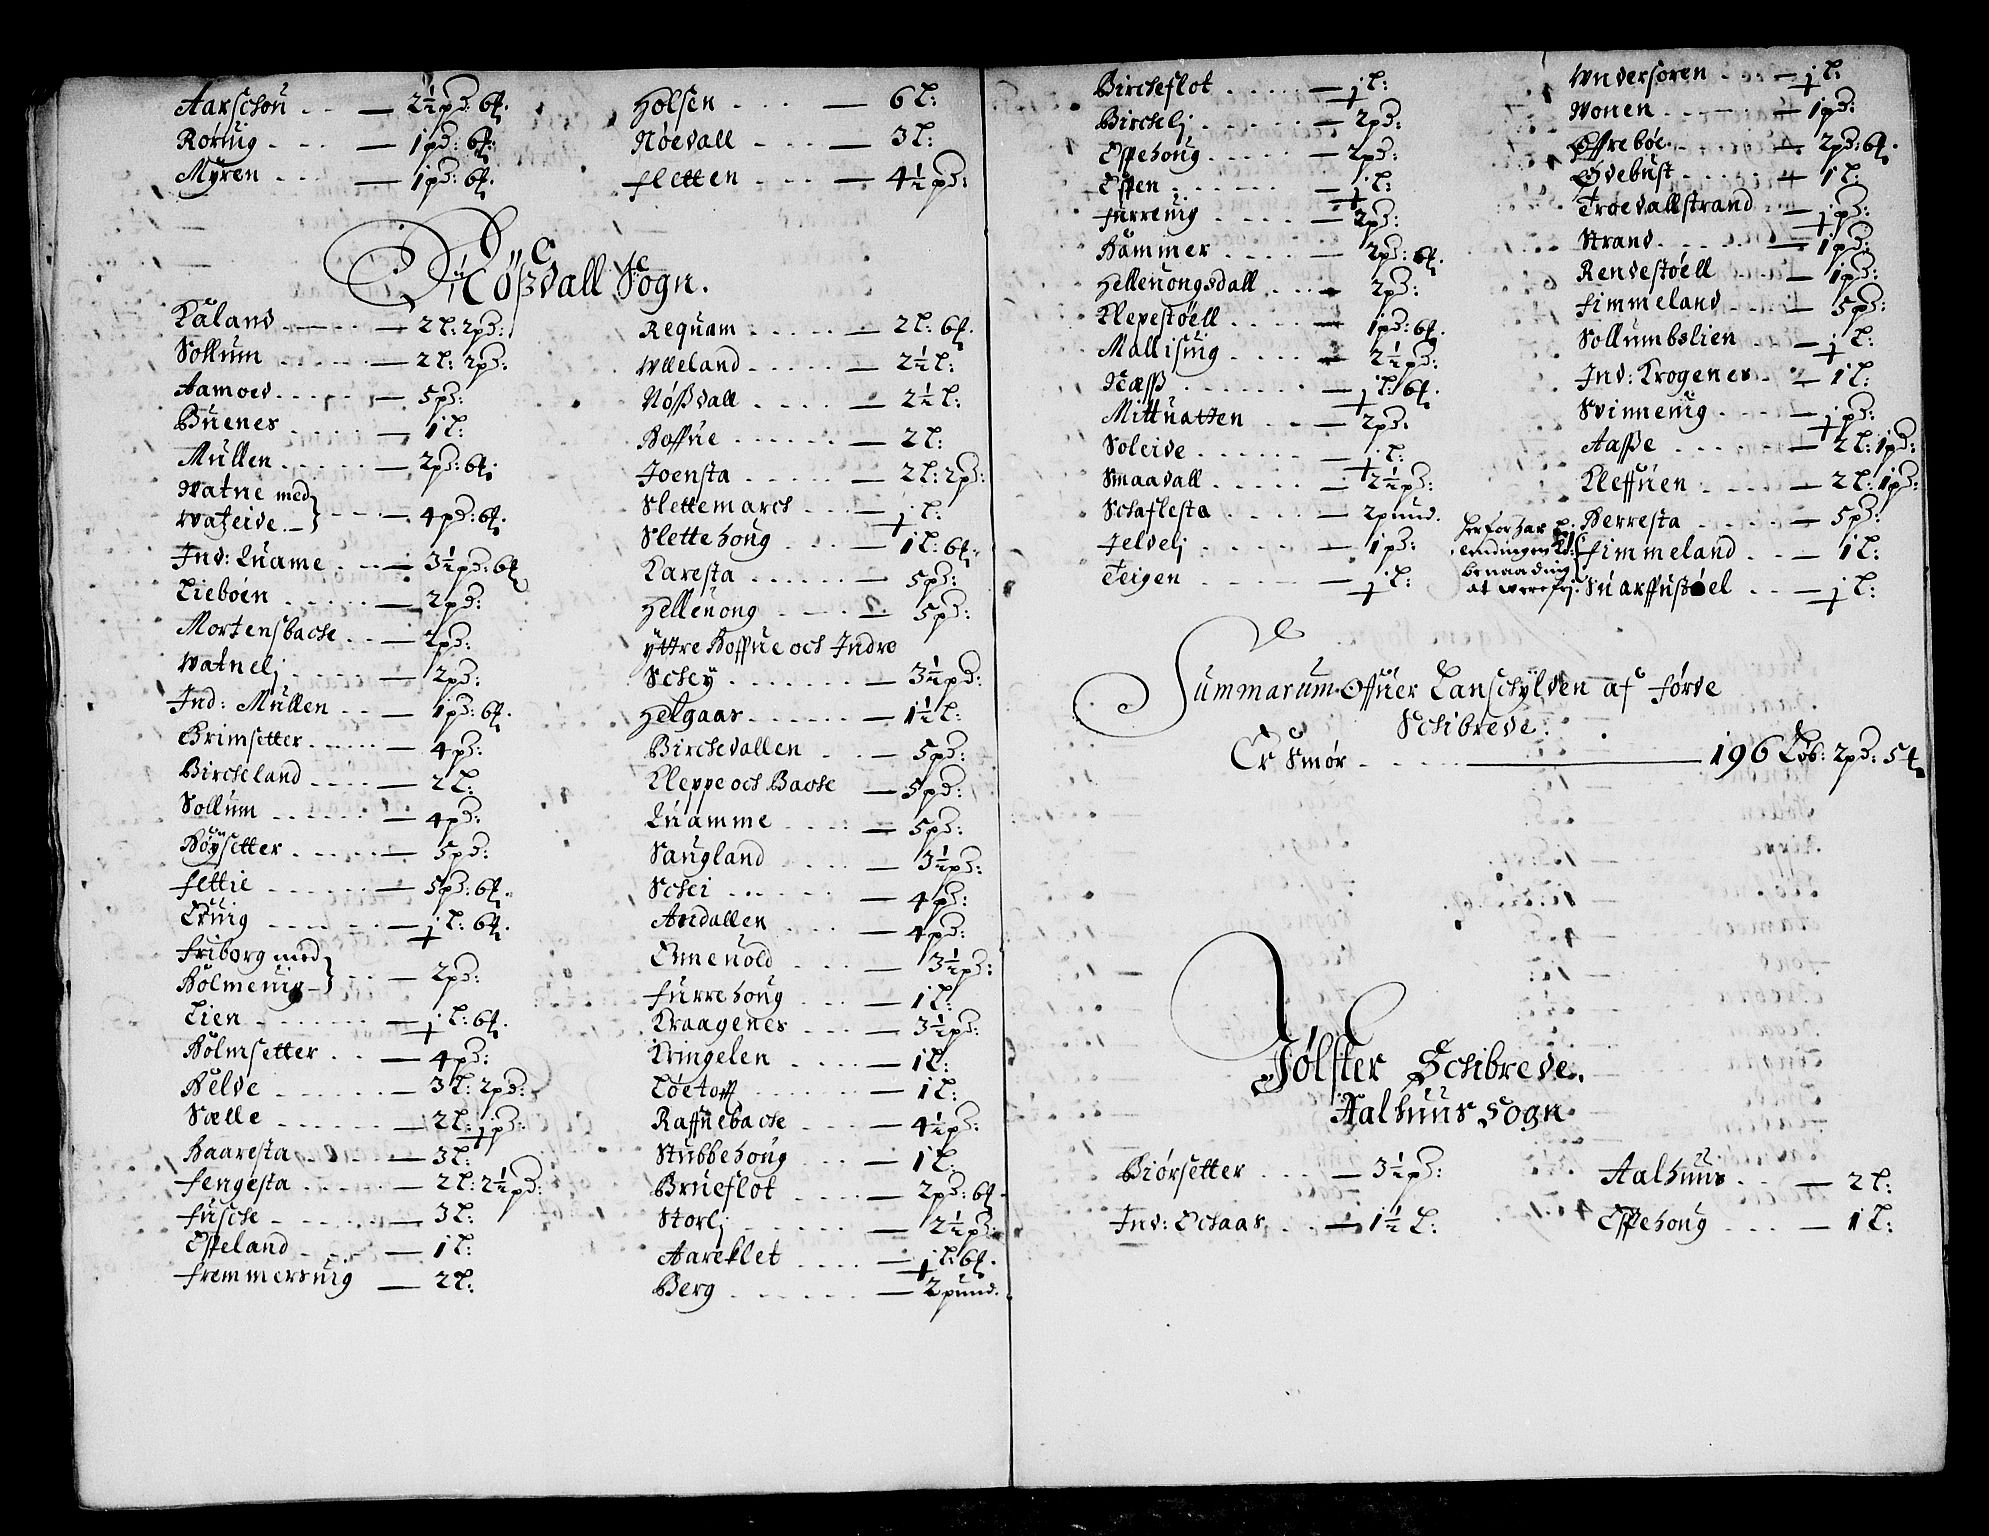 Aarschou - - — 2½ pd: 6 ℔.
Röruig - - - — 1 pd: 6 ℔:
Myren - - - — 1 pd: 6 ℔.
Holsen - - - — 6 l:
Nöedall - - - — 3 l:
Fletten - - - — 4½ pd:
Nößdall Sogn.
Kaland — 2 l: 2 pd:
Sollum - - - — 2 l: 2 pd:
Aamoed - - - — 5 pd:
Buenes - - - — 1 l:
Mullen - - - — 2 pd: 6 ℔:
Watne med
Wateide — 4 pd: 6 ℔.
Ind: Quame - - — 3½ pd: 6 ℔
Lieböen - - - — 2 pd:
Mortensbache - - — 2 pd:
Watnelj - - - — 2 pd:
Ind: Mullen - - — 1 pd: 6 ℔.
Grimsetter - - - — 4 pd:
Bircheland - - - — 2 l:
Sollum - - - — 4 pd:
Höÿsetter - - - — 5 pd:
Fettie - - - — 5 pd: 6 ℔.
Eruig - - - — j l: 6 ℔.
Friborg med
Holmenig — 2 pd:
Lien - - - — j l: 6 ℔.
Holmsetter - - — 4 pd:
Helde - - - — 3 l: 2 pd:
Sælle - - - — 2 l: j pd:
Haaresta - - - — 3 l:
Fengesta - - - — 2 l: 2½ pd:
Fusche - - - — 3 l:
Espeland - - - — 1 l:
Fremmersuig — 2 l.
Requam - - - — 2 l: 6 ℔.
Wæeland - - - — 2½ l:
Nößdall - - - — 2½ l:
Hoffue - - - — 2 l:
Joensta - - - — 2 l: 2 pd:
Slettemarch - - - — j l:
Slettehoug - - - — 1 l: 6 ℔.
Karesta - - - — 5 pd:
Helleuong - - - 5 pd:
yttre Hoffue och Indre
Schey - - - — 3½ pd:
Helgaas - - - — 1½ l:
Birchedallen - - — 5 pd:
Kleppe och Bache — 5 pd:
Quamme - - - — 5 pd:
Saugland - - - 3½ pd:
Schei - - - — 4 pd:
Andallen - - - — 4 pd:
Emeuold - - - — 3½ pd:
Furrehoug - - - — 1 l:
Kraagenes - - - — 3½ pd:
Kringelen - - - — 1 l:
Löetoff - - - — 1 l:
Raffnebache - - - — 4½ pd:
Stubbehoug - - - — 1 l:
Brueflot - - - — 2 pd: 6 ℔.
Storlj - - - — 2½ pd:
Aareklet - - - — j l: 6 ℔.
Berg - - - — 2 pund.
Bircheflot - - - — j l:
Birchelj - - - — 2 pd:
Espehoug - - - — 2 pd:
Espen - - - — j l:
Furreuig - - - — 2 pd:
Hammer - - - — 2 pd: 6 ℔.
Helleuongsdall - - - 2 pd:
Klepestöell - - - — 1 pd: 6 ℔.
Mallisuig - - - — 2½ pd:
Næss - - - — j l: 6 ℔.
Mittnatten - - — 2 pd:
Soleide - - - — j l:
Smaadall - - - — 2½ pd:
Schaflesta - - - — 2 pund.
Jeldelj - - - — 1 pd:
Teigen - - - — j l:
Wndersoren - - - — j l:
Wonen - - - — 1 pd:
Effreböe - - - — 2 pd: 6 ℔.
Ødebust - - - — 1 l:
Tröedallstrand - - — j pd:
Strand - - - — 1 pd:
Rendestöell - - - — 1 pd:
Fimmeland - - - — 5 pd:
Sollumbslien - - - — j l:
Ind: Krogenes - - — 1 l:
Svinneuig - - - — j pd:
Aasse - - - — 2 l: 1 pd:
Kleffuen - - - — 2 l: 1 pd:
Herresta - - - — 5 pd:
Fimmeland - - - — 1 l:
Suarffustöel - - - — j l:
herfor har
benaading
Summarum Offuer Landschÿlden af Førde
Schibrede:
Er Smör - - - — 196 Løb: 2 pd: 5 ℔
Jölster Schibrede.
Aalhuus Sogn
Biörsetter - - - — 3½ pd:
Ind: Echaas - - — 1½ l:
Aalhuus - - - — 2 l:
Espehoug - - - — 1 l: